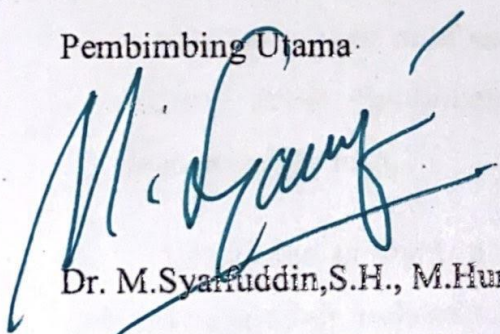 Pembimbing Utama
Dr. M.Syarifuddin,S.H., M.Hum